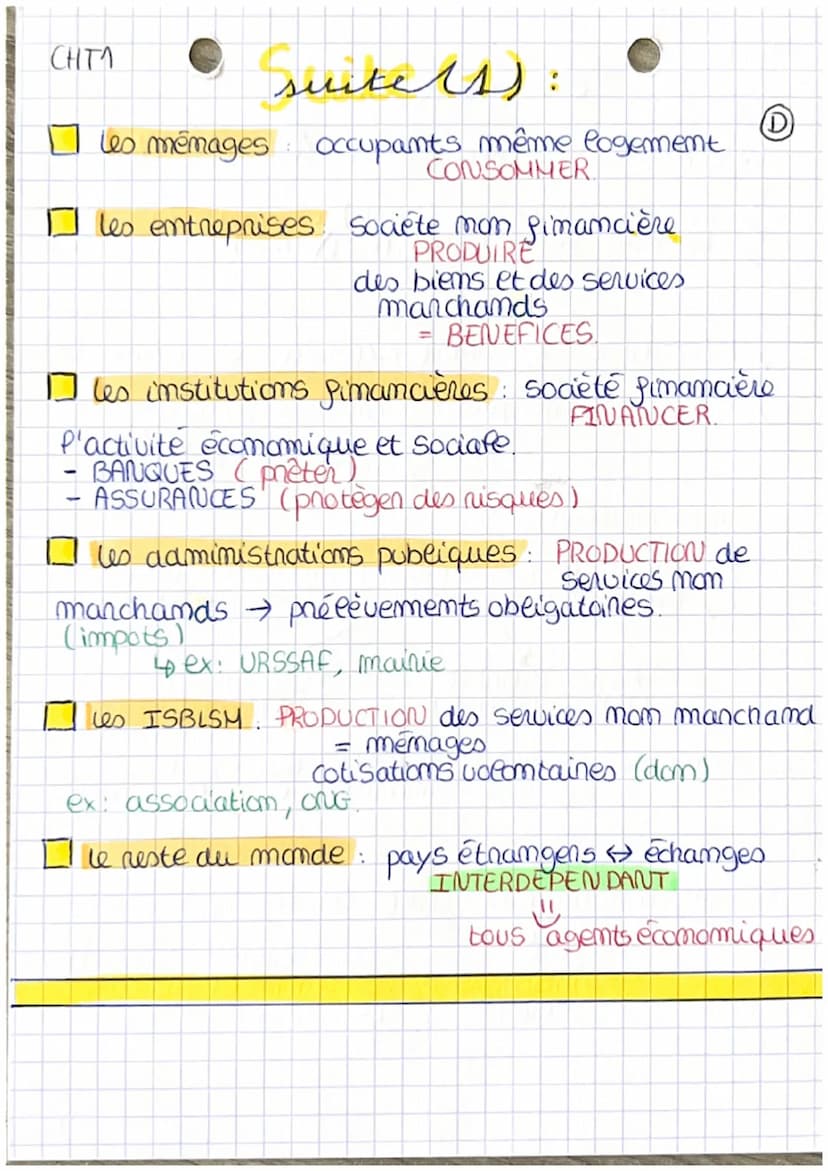 CHT1
Suite (1) :
D
les ménages : occupants même logement
CONSOMMER.
les entreprises : société non financière
PRODUIRE
des biens et des services
marchands
= BENEFICES.
les institutions financières : société financière
FINANCER.
l'activité économique et sociale.
- BANQUES (prêter)
- ASSURANCES (protéger des risques)
les administrations publiques : PRODUCTION de
services non
marchands → prélèvements obligatoires.
(impots)
↳ ex: URSSAF, mairie
les ISBLSM : PRODUCTION des services non marchand
= ménages
cotisations volontaires (don)
ex: association, ONG.
le reste du monde : pays étrangers ↔ échanges
INTERDEPENDANT
=
tous agents économiques